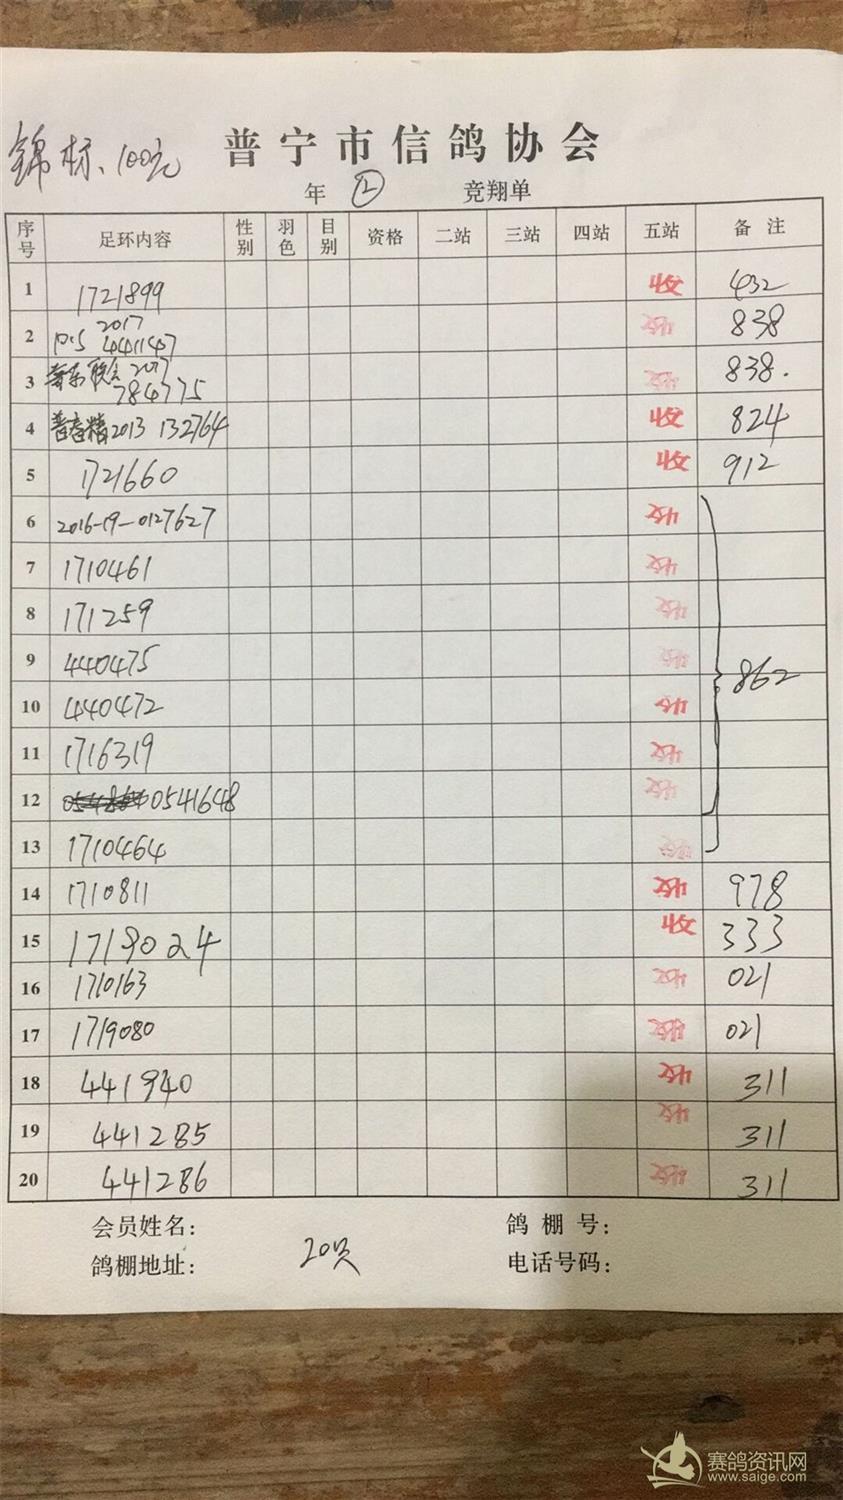 锦标、100元
普宁市信鸽协会
年 ② 竞翔单
序号 足环内容 性别 羽色 目别 资格 二站 三站 四站 五站 备注
1 1721899 收 432
2 2017 441147 收 838
3 2017 784775 收 838.
4 2013 132764 收 824
5 1721660 收 912
6 2016-19-0127627 收
7 1710461 收
8 171259 收
9 440475 收
862
10 440472 收
11 1716319 收
12 0541648 收
13 1710464 收
14 1710811 收 978
15 1719024 收 333
16 1710163 收 021
17 1719080 收 021
18 441940 收 311
19 441285 收 311
20 441286 收 311
会员姓名： 鸽棚号：
鸽棚地址： 20只 电话号码：
赛鸽资讯网
www.saige.com